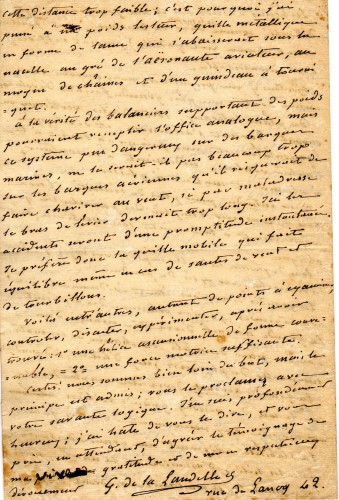 cette distance trop faible; c'est pourquoi j'ai
pensé à un poids lesteur, quille métallique
en forme de lame qui s'abaisserait sous la
nacelle au gré de l'aéronaute aviateur, au
moyen de chaînes et d'un guindeau à tourni
=quet.
à la vérité des balanciers supportant des poids
pourraient remplir l'office analogue, mais
ce système peu dangereux sur des barques
marines, ne le serait-il pas beaucoup trop
sur les barques aériennes qu'il risquerait de
faire chavirer au vent, si par maladresse
le bras de levier devenait trop long. Ici les
accidents seront d'une promptitude instantanée.
Je préfère donc la quille mobile qui fait
équilibre même en cas de sautes de vent et
de tourbillons.
Voilà entr'autres, autant de points à examiner,
controler, discuter, expérimenter, après avoir
trouvé: 1º une hélice ascensionnelle de forme conve-
=nable, = 2º une force motrice suffisante.
Certes nous sommes bien loin du but, mais le
principe est admis, vous le proclamez avec
votre savante logique. J'en suis profondément
heureux; j'ai hâte de vous le dire, et vous
prie, en attendant, d'agréer le témoignage de
ma gratitude et de mon respectueux
dévouement G. de la Landelle
rue de Lancry 42.